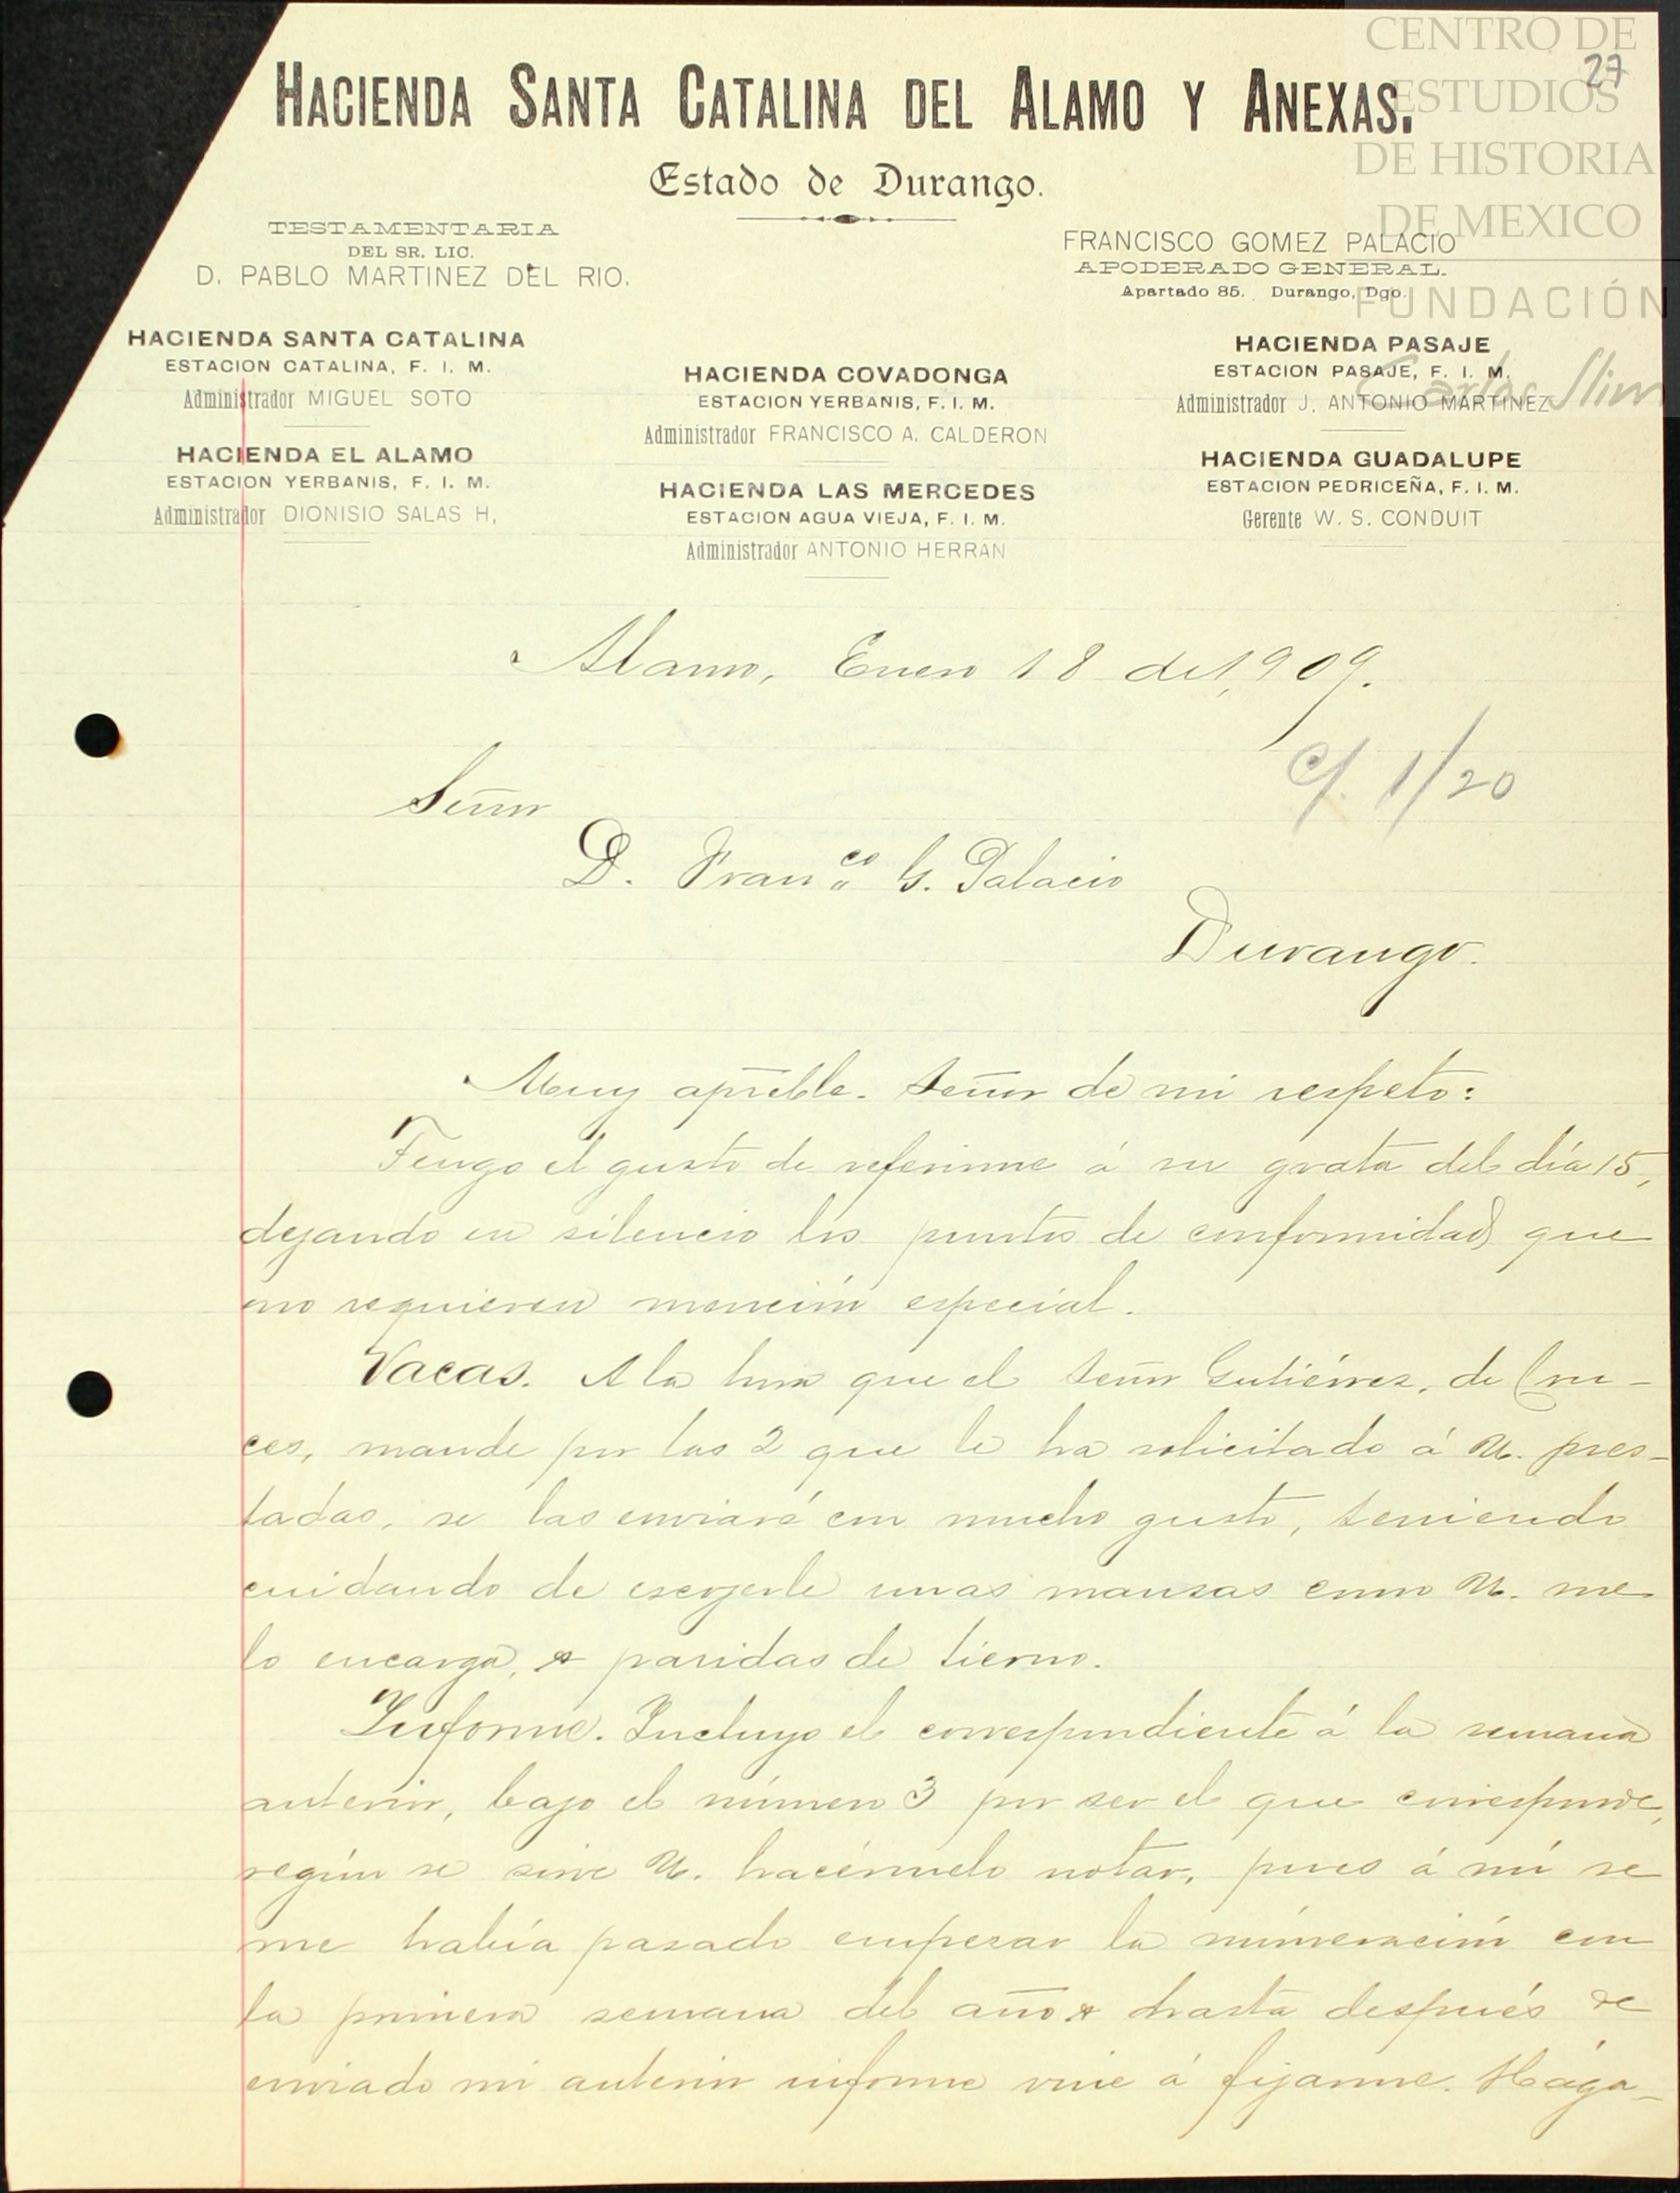 CENTRO DE
ESTUDIOS
DE HISTORIA
DE MEXICO
FUNDACIÓN
Carlos Slim
27
HACIENDA SANTA CATALINA DEL ALAMO Y ANEXAS.
Estado de Durango.
TESTAMENTARIA
DEL SR. LIC.
D. PABLO MARTINEZ DEL RIO.
FRANCISCO GOMEZ PALACIO
APODERADO GENERAL.
Apartado 85. Durango, Dgo.
HACIENDA SANTA CATALINA
ESTACION CATALINA, F. I. M.
Administrador MIGUEL SOTO
HACIENDA EL ALAMO
ESTACION YERBANIS, F. I. M.
Administrador DIONISIO SALAS H,
HACIENDA COVADONGA
ESTACION YERBANIS, F. I. M.
Administrador FRANCISCO A. CALDERON
HACIENDA LAS MERCEDES
ESTACION AGUA VIEJA, F. I. M.
Administrador ANTONIO HERRAN
HACIENDA PASAJE
ESTACION PASAJE, F. I. M.
Administrador J. ANTONIO MARTINEZ
HACIENDA GUADALUPE
ESTACION PEDRICEÑA, F. I. M.
Gerente W. S. CONDUIT
Alamo, Enero 18 de 1,909.
c/. 1/20
Señor
D. Franco G. Palacio
Durango.
Muy apreble. Señor de mi respeto:
Tengo el gusto de referirme á su grata del día 15,
dejando en silencio los puntos de conformidad que
no requieren mención especial.
Vacas. A la hora que el Señor Gutiérrez, de Cru-
ces, mande por las 2 que le ha solicitado á U. pres-
tadas, se las enviaré con mucho gusto, teniendo
cuidando de escojerle unas mansas como U. me
lo encarga, y paridas de tierno.
Informe. Incluyo el correspondiente á la semana
anterior, bajo el número 3 por ser el que corresponde,
según se sirve U. hacérmelo notar, pues á mí se
me había pasado empezar la númeración con
la primera semana del año y hasta después de
enviado mi anterior informe vine á fijarme. Hága-